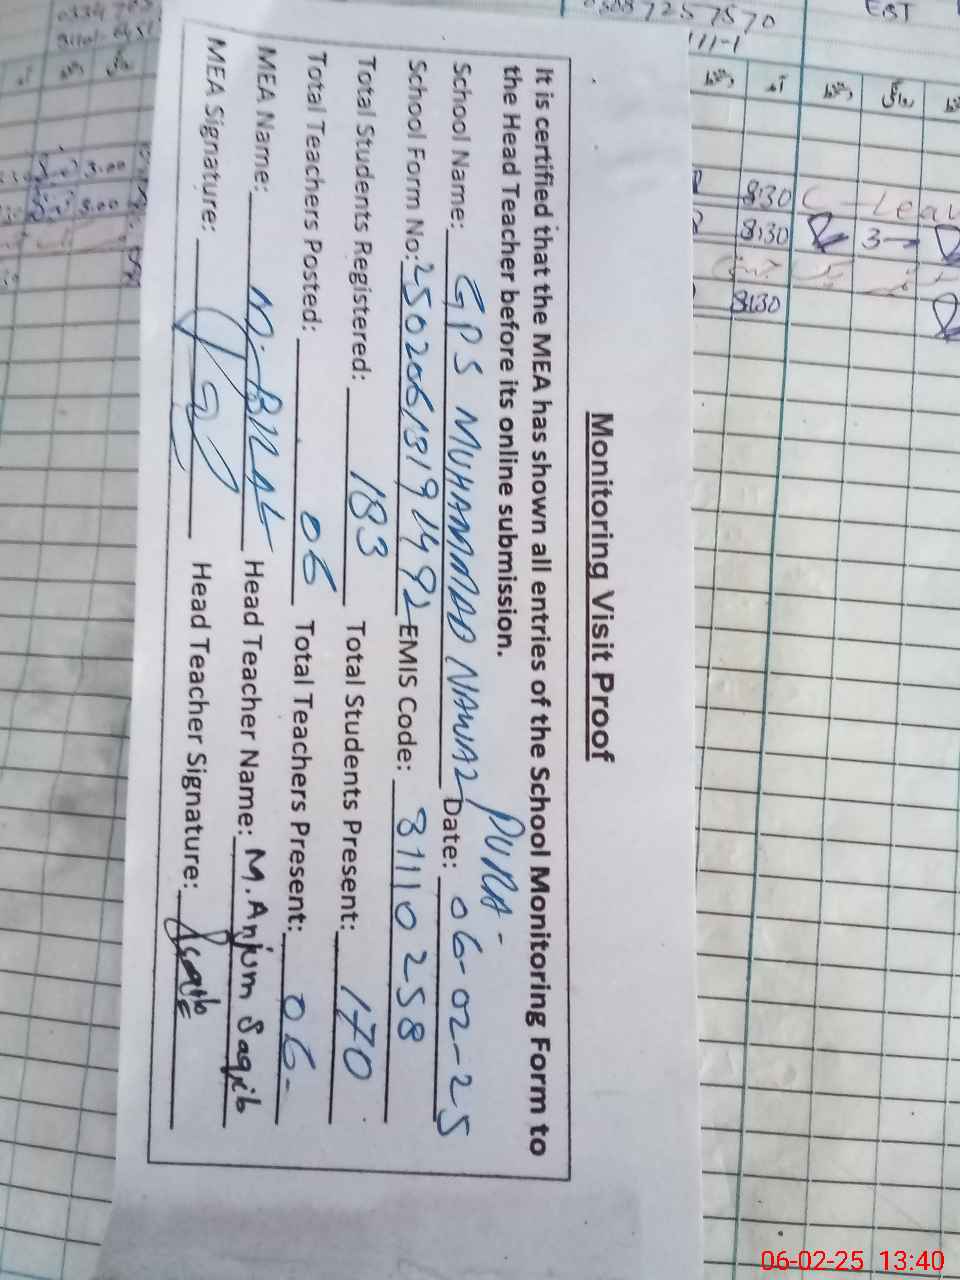 Monitoring Visit Proof
It is certified that the MEA has shown all entries of the School Monitoring Form to
the Head Teacher before its online submission.
School Name: GPS MUHAMMAD NAWAZ PURA - Date: 06-02-25
School Form No: EMIS Code: 31110258
Total Students Registered: 183 Total Students Present: 170
Total Teachers Posted: 06 Total Teachers Present: 06-
MEA Name: M. BILAL Head Teacher Name: M. Anjum Saqib
MEA Signature: Head Teacher Signature:
EBT
111-1
8:30 C - Leav
8:30 3
8:30
3:00
3:00
06-02-25 13:40